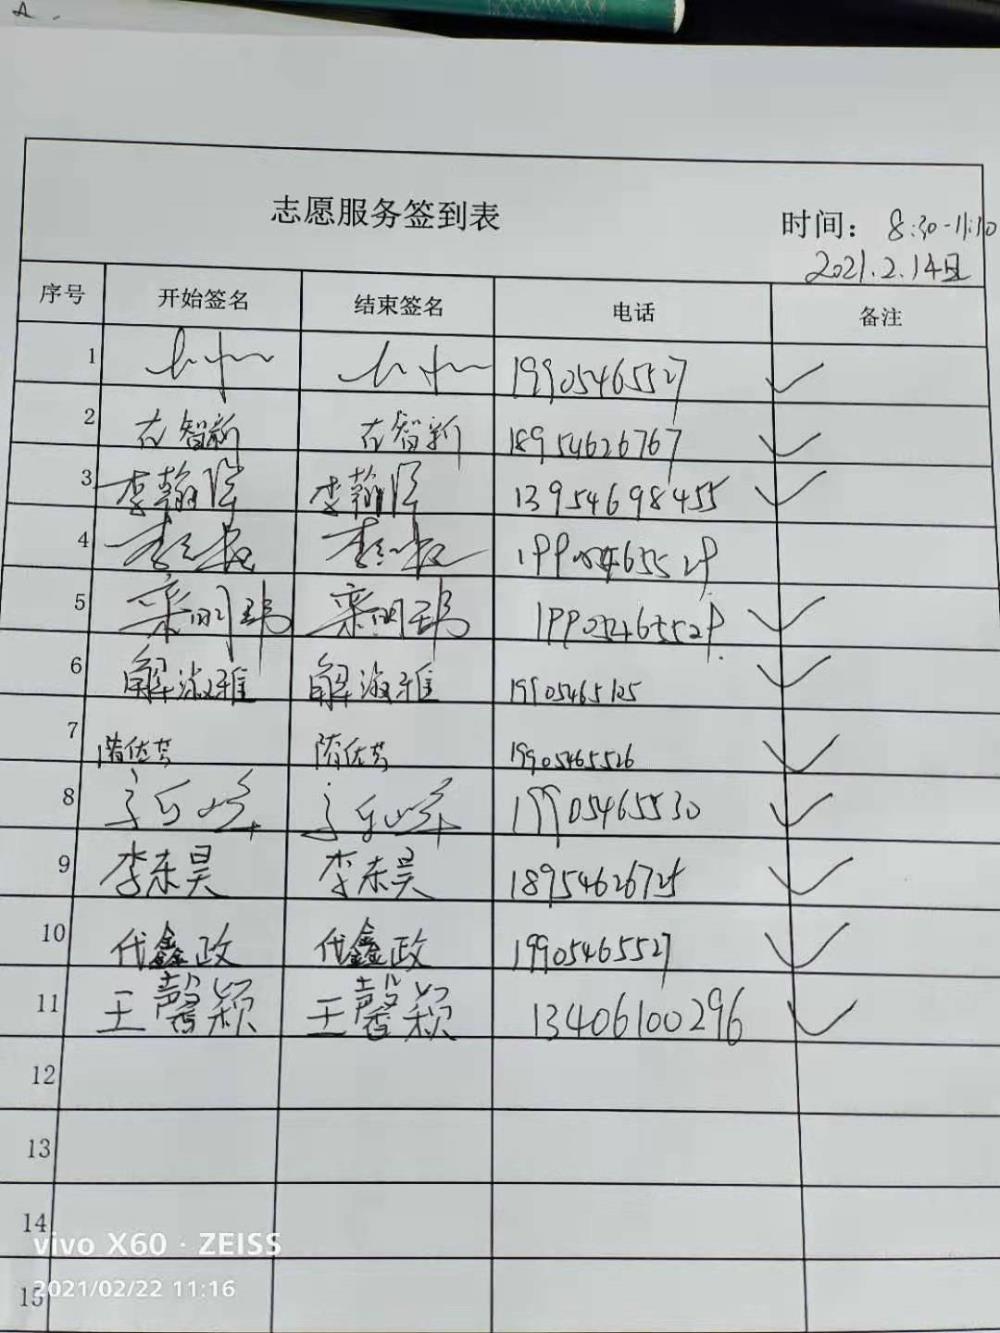 志愿服务签到表
时间： 8:30-11:10
2021.2.14
序号 开始签名 结束签名 电话 备注
1 19905465527 ✓
2 左智新 左智新 18954626767 ✓
3 李翰 李翰 13954698455 ✓
4
5 栾明玮 栾明玮 19905465529 ✓
6 解淑雅 解淑雅 19905465125 ✓
7 隋佐芸 隋佐芸 19905465526 ✓
8 19905465530 ✓
9 李东昊 李东昊 18954626725 ✓
10 代鑫政 代鑫政 19905465527 ✓
11 王馨颖 王馨颖 13406100296 ✓
12
13
14
15
vivo X60 · ZEISS
2021/02/22 11:16